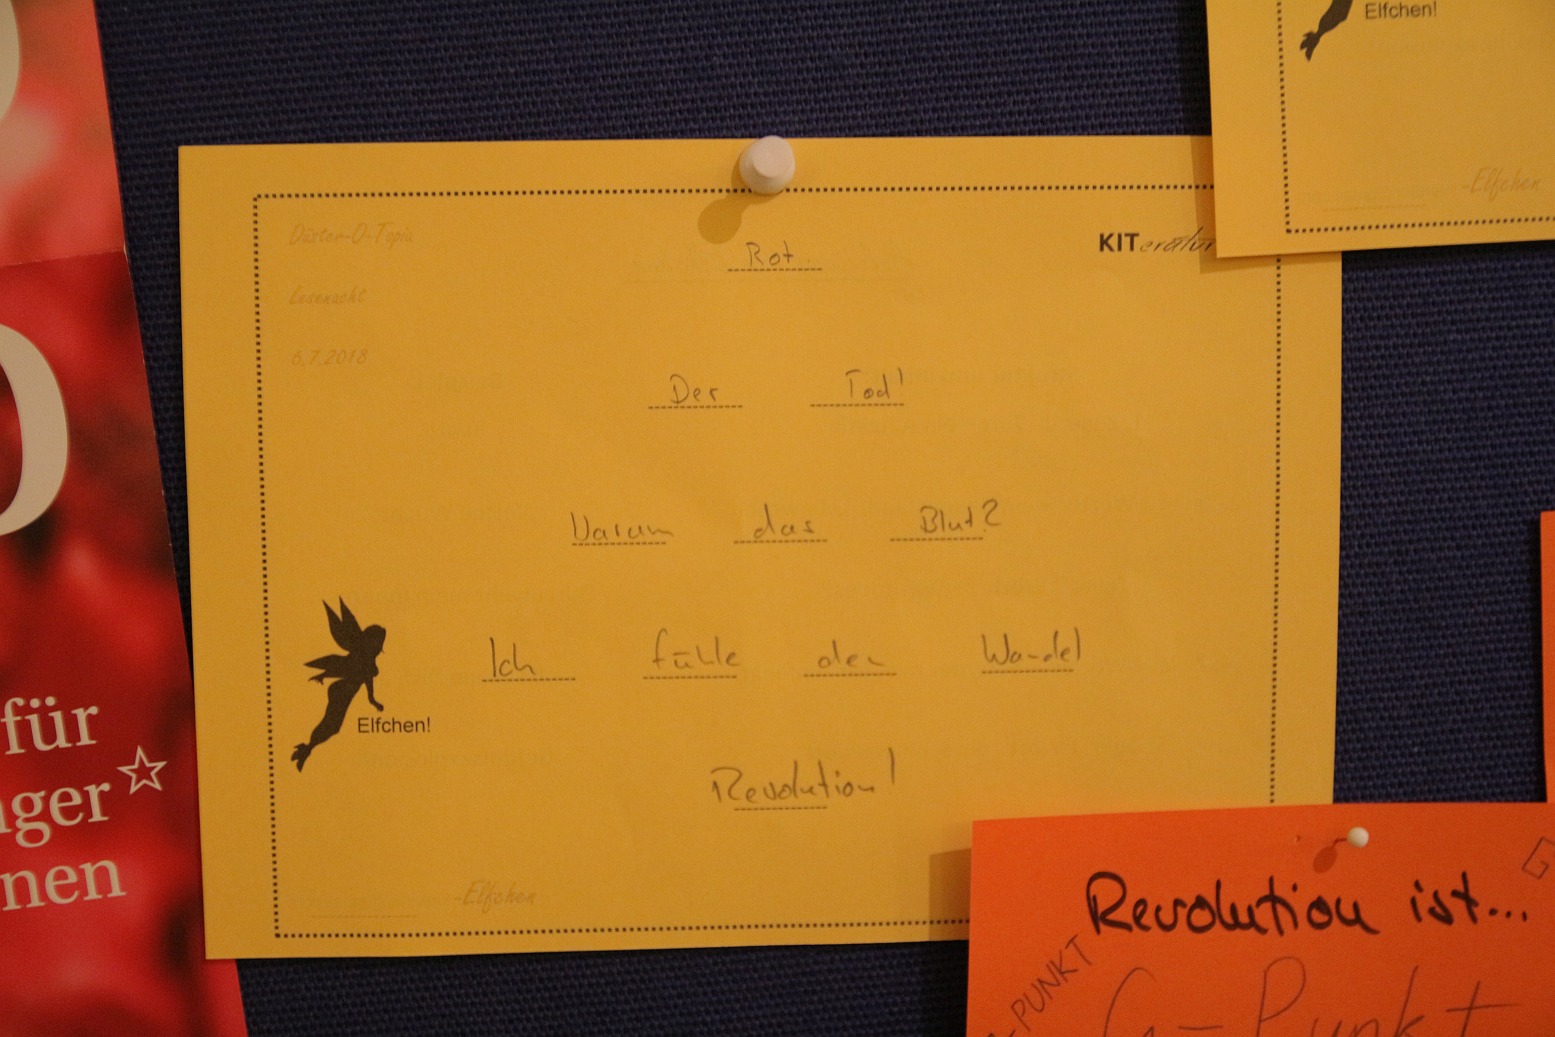 Elfchen!
-Elfchen
Düster-O-Topia
KITeratur
Rot.
Lesenacht
6.7.2018
Der Tod!
Warum das Blut?
Ich fühle den Wandel
Elfchen!
Revolution!
-Elfchen
für
nger
nen
Revolution ist...
-PUNKT
G-Punkt